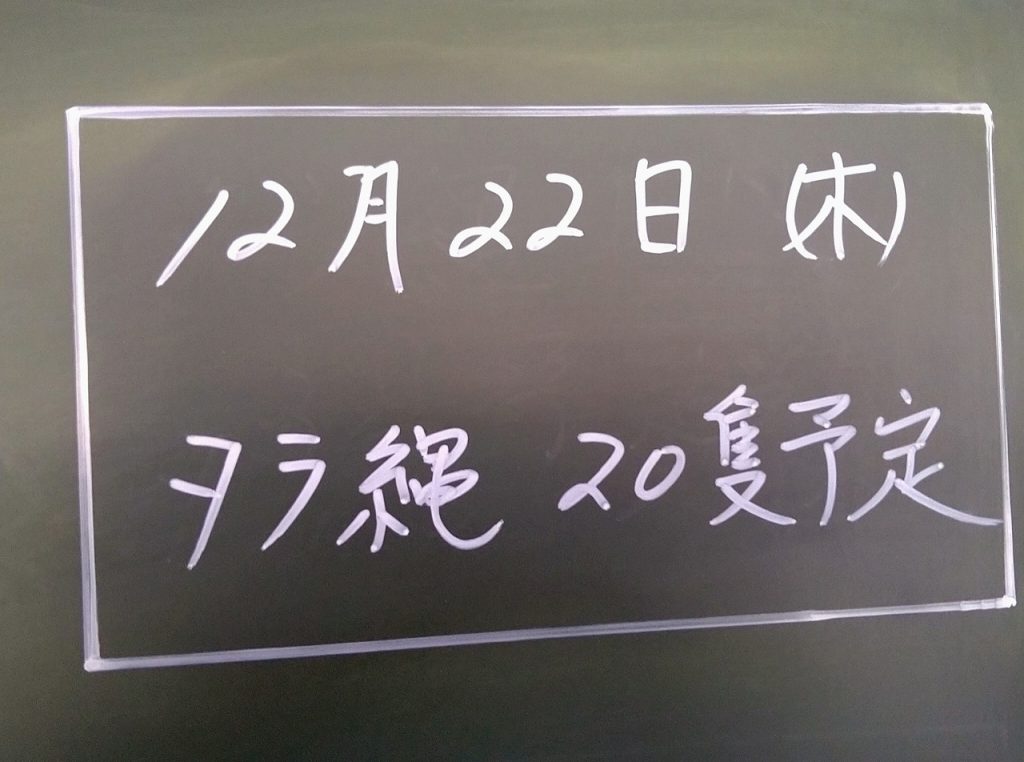 12月22日 (木)
タラ縄 20隻予定